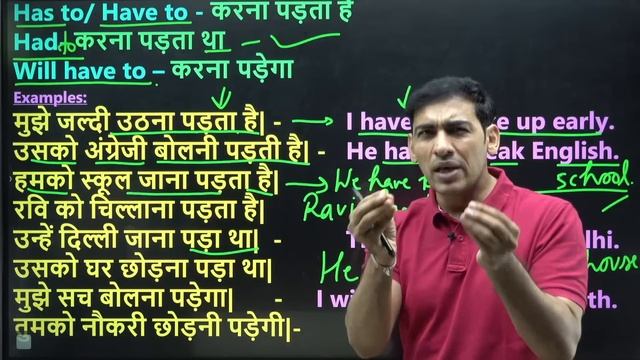 Has to/ Have to - करना पड़ता है
Had to करना पड़ता था
Will have to – करना पड़ेगा
Examples:
मुझे जल्दी उठना पड़ता है| - → I have up early.
उसको अंग्रेजी बोलनी पड़ती है| - He English.
हमको स्कूल जाना पड़ता है| → We have school.
रवि को चिल्लाना पड़ता है| Ravi
उन्हें दिल्ली जाना पड़ा था| -
उसको घर छोड़ना पड़ा था| He house
मुझे सच बोलना पड़ेगा| - I
तुमको नौकरी छोड़नी पड़ेगी|-